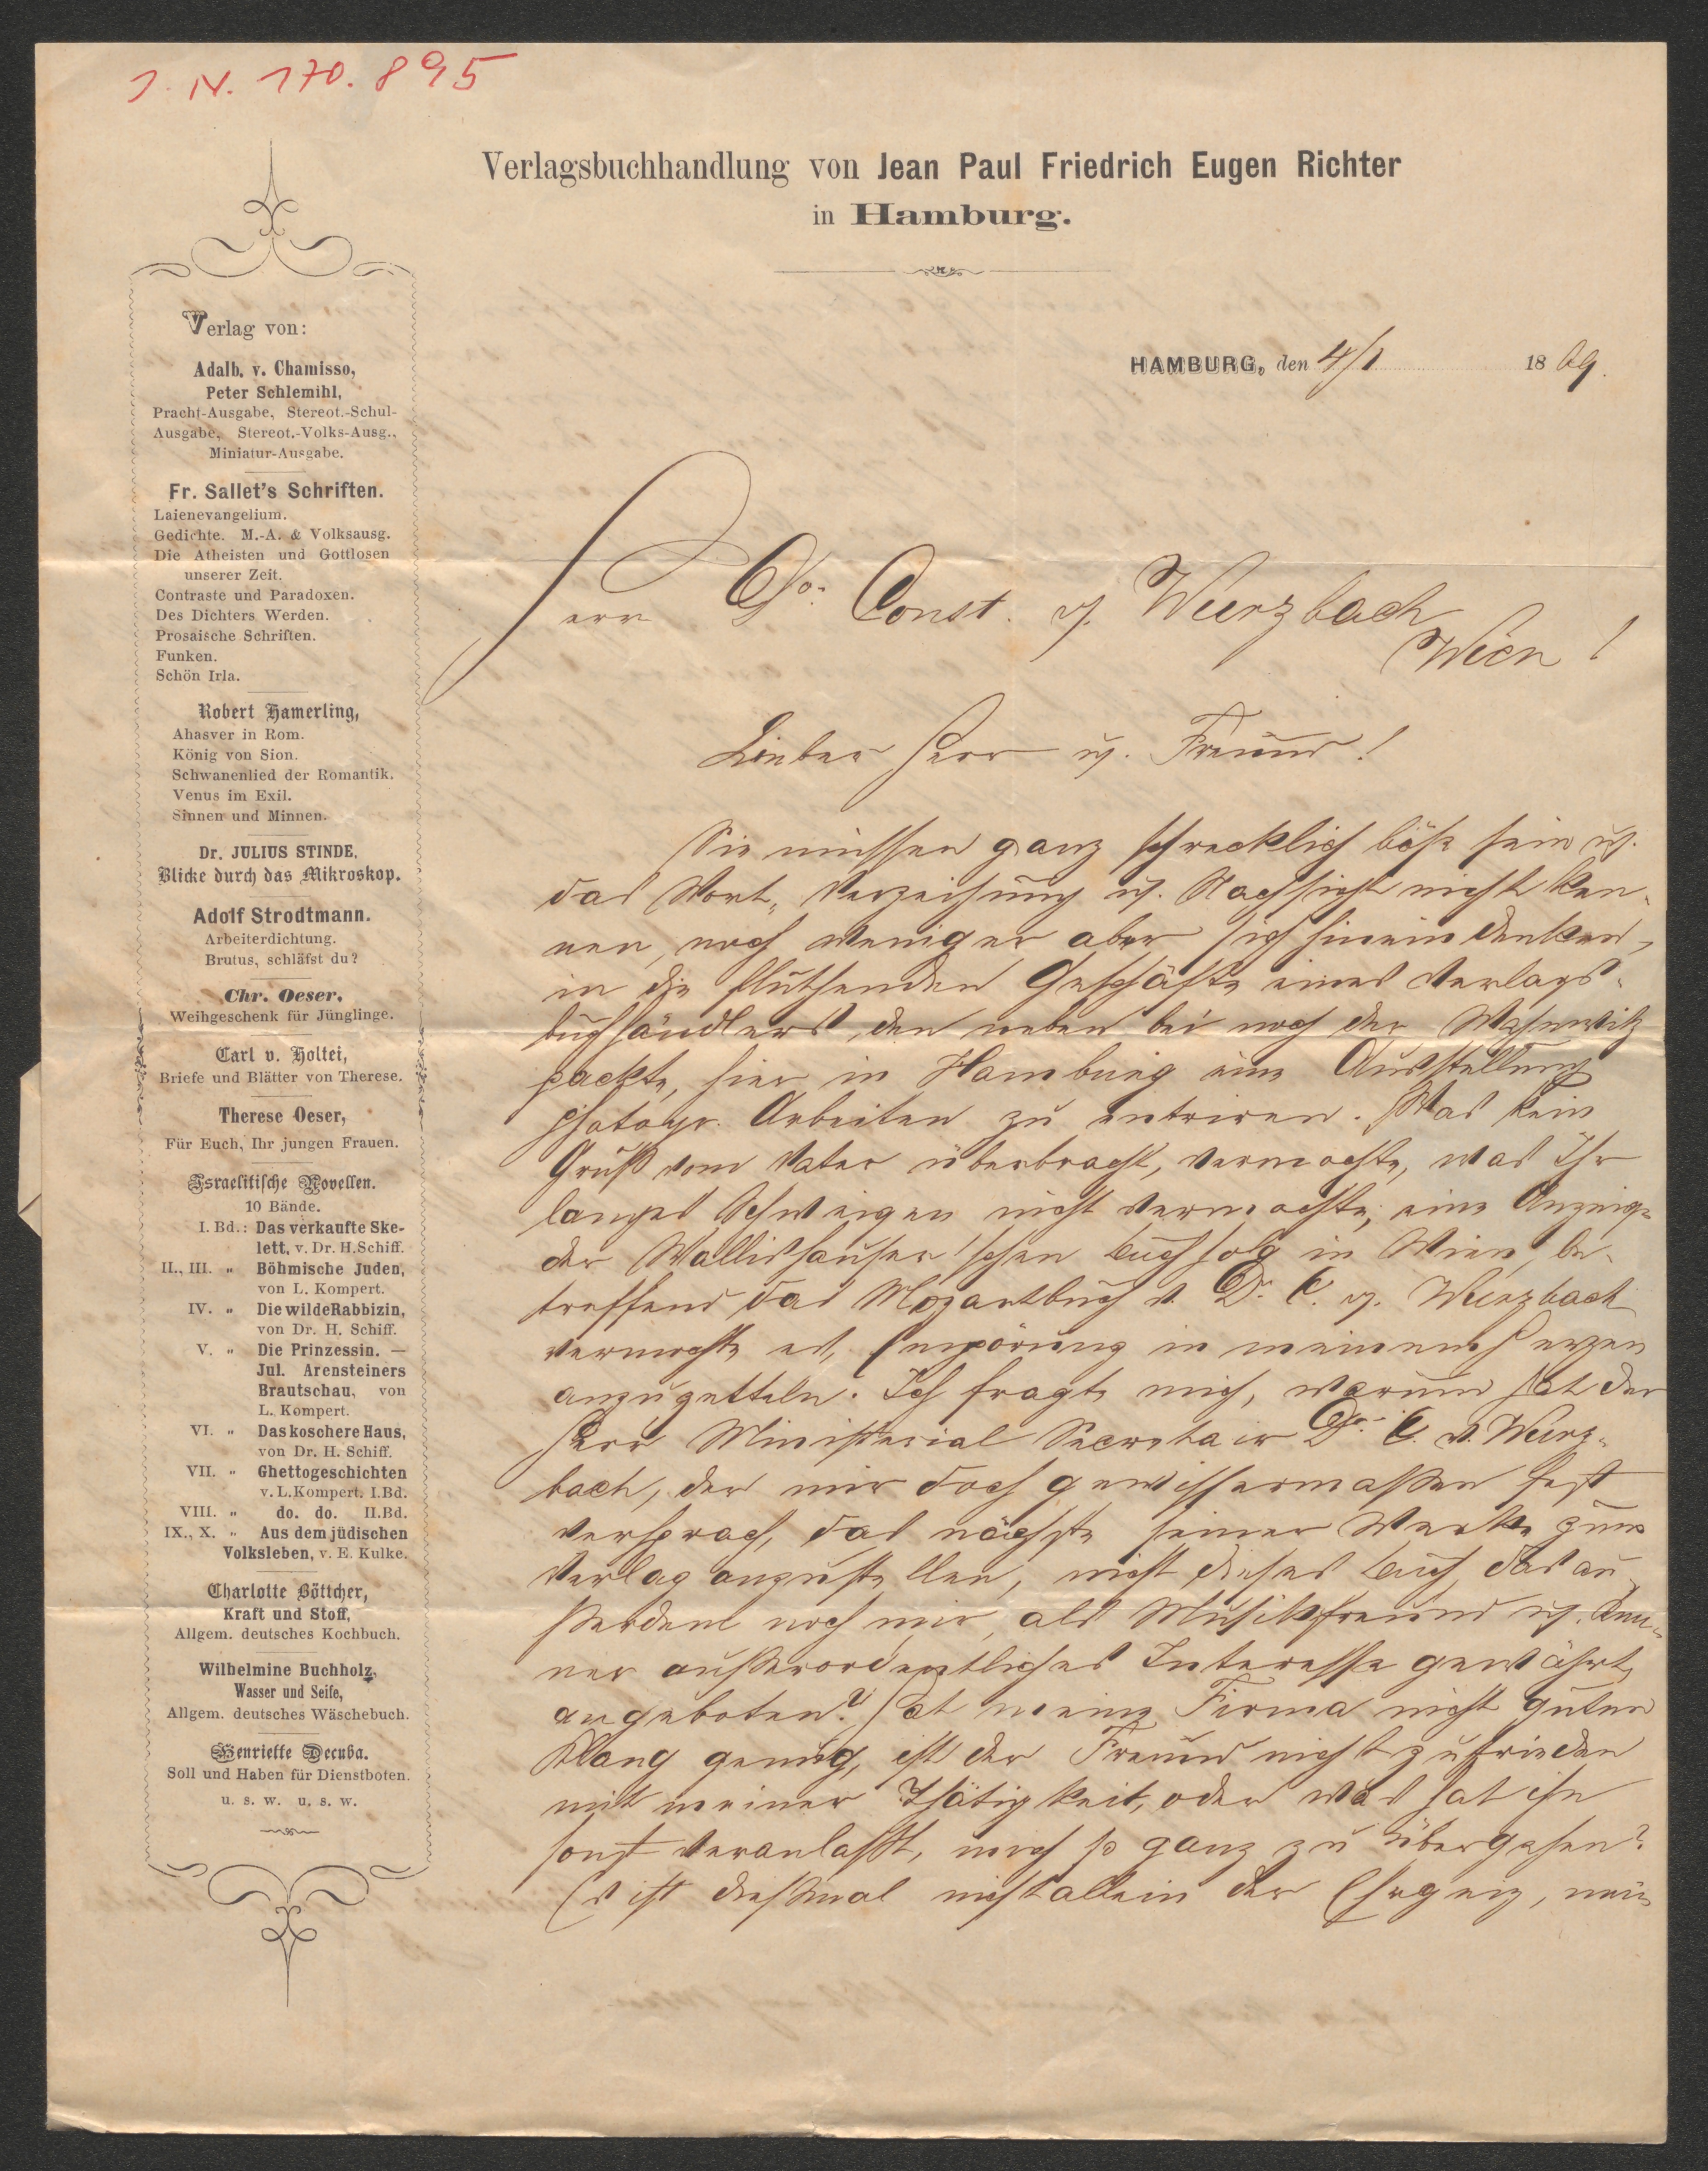 J. N. 170.895
Verlagsbuchhandlung von Jean Paul Friedrich Eugen Richter
in Hamburg.
HAMBURG, den 4/1 1869.
Verlag von:
Adalb. v. Chamisso,
Peter Schlemihl,
Pracht-Ausgabe, Stereot.-Schul-
Ausgabe, Stereot.-Volks-Ausg.,
Miniatur-Ausgabe.
Fr. Sallet's Schriften.
Laienevangelium.
Gedichte. M.-A. & Volksausg.
Die Atheisten und Gottlosen
unserer Zeit.
Contraste und Paradoxen.
Des Dichters Werden.
Prosaische Schriften.
Funken.
Schön Irla.
Robert Hamerling,
Ahasver in Rom.
König von Sion.
Schwanenlied der Romantik.
Venus im Exil.
Sinnen und Minnen.
Dr. JULIUS STINDE,
Blicke durch das Mikroskop.
Adolf Strodtmann.
Arbeiterdichtung.
Brutus, schläfst du?
Chr. Oeser,
Weihgeschenk für Jünglinge.
Carl v. Holtei,
Briefe und Blätter von Therese.
Therese Oeser,
Für Euch, Ihr jungen Frauen.
Israelitische Novellen.
10 Bände.
I. Bd.: Das verkaufte Ske-
lett, v. Dr. H. Schiff.
II., III. " Böhmische Juden,
von L. Kompert.
IV. " Die wilde Rabbizin,
von Dr. H. Schiff.
V. " Die Prinzessin. —
Jul. Arensteiners
Brautschau, von
L. Kompert.
VI. " Das koschere Haus,
von Dr. H. Schiff.
VII. " Ghettogeschichten
v. L. Kompert. I. Bd.
VIII. " do. do. II. Bd.
IX., X. " Aus dem jüdischen
Volksleben, v. E. Kulke.
Charlotte Böttcher,
Kraft und Stoff,
Allgem. deutsches Kochbuch.
Wilhelmine Buchholz,
Wasser und Seife,
Allgem. deutsches Wäschebuch.
Henriette Decuba.
Soll und Haben für Dienstboten.
u. s. w. u. s. w.
Herrn Dr. Const. v. Wurzbach
Wien!
Lieber Herr u. Freund!
Sie müssen ganz schrecklich böse sein u.
das Wort, Verzeihung u. Nachsicht nicht ken-
nen, noch weniger aber sich hineindenken,
in die fluthenden Geschäfte eines Verlags-
buchhändlers, den neben bei noch der Wahnwitz
packte, hier in Hamburg eine Ausstellung
photogr. Arbeiten zu entriren. Was kein
Gruß vom Vater überbracht, vermochte, was Ihr
langes Schweigen nicht vermochte, eine Anzeige
der Wallishausser'schen Buchholg in Wien, be-
treffend das Mozartbuch v. Dr. C. v. Wurzbach
vermochte es, Empörung in meinem Herzen
anzuzetteln. Ich fragte mich, warum hat der
Herr Ministerial Secretair Dr. C. v. Wurz-
bach, der mir doch gewissermaßen fest
versprach, das nächste seiner Werke zum
Verlag anzustellen, nicht dieses Buch, das au-
ßerdem noch mir, als Musikfreund u. Ken-
ner außerordentliches Interesse gewährt,
angeboten? Hat meine Firma nicht guten
Klang genug, ist der Freund nicht zufrieden
mit meiner Thätigkeit, oder was hat ihn
sonst veranlaßt, mich so ganz zu übergehen?
Es ist diesmal nicht allein der Ehrgeiz, mein